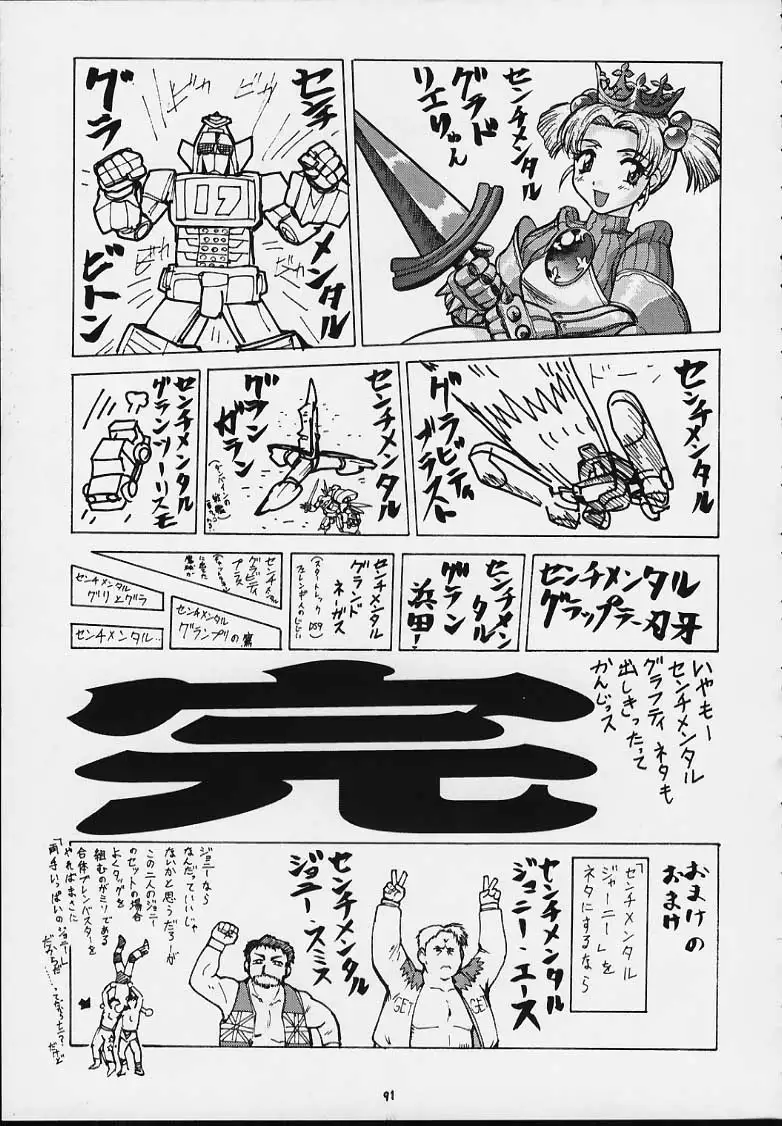 センチメンタル
グラド
リエりゃん
センチ
メンタル
グラ
ビトン
ビカ
ビカ
17
センチメンタル
グラビティ
ブラスト
ドーン
センチメンタル
グラン
ガラン
センチメンタル
グランツーリスモ
センチメンタル
グラップラー刃牙
センチメン
タル
グラン
浜田！
センチメンタル
グランド
ネーガス
(スタートレックDS9
フェレンギ人のじじい)
センチメンタル
グラビティ
プラス
センチメンタル
グランプリの鷹
センチメンタル
グリとグラ
センチメンタル…
いやもー
センチメンタル
グラフティネタも
出しきったって
かんじっス
完
おまけの
おまけ
「センチメンタル
ジャーニー」を
ネタにするなら
センチメンタル
ジョニー・エース
GET
GET
センチメンタル
ジョニー・スミス
ジョニーなら
なんだっていいじゃ
ないかと思うだろーが
この二人のジョニー
のセットの場合
よくタッグを
組むのがミソである
合体ブレンバスターを
やればまさに
「両手いっぱいのジョニー」
だろうが
91